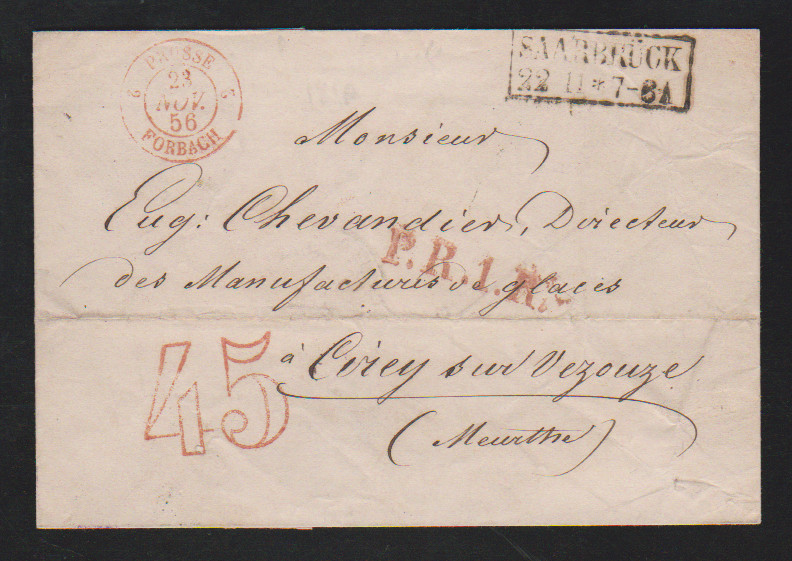 PRUSSE
2 23 2
NOV.
56
FORBACH
SAARBRÜCK
22 11 * 7-8A
Monsieur
Eug: Chevandier, Directeur
P. R. 1. R.
des Manufactures de glaces
45
à Cirey sur Vezouze
(Meurthe)